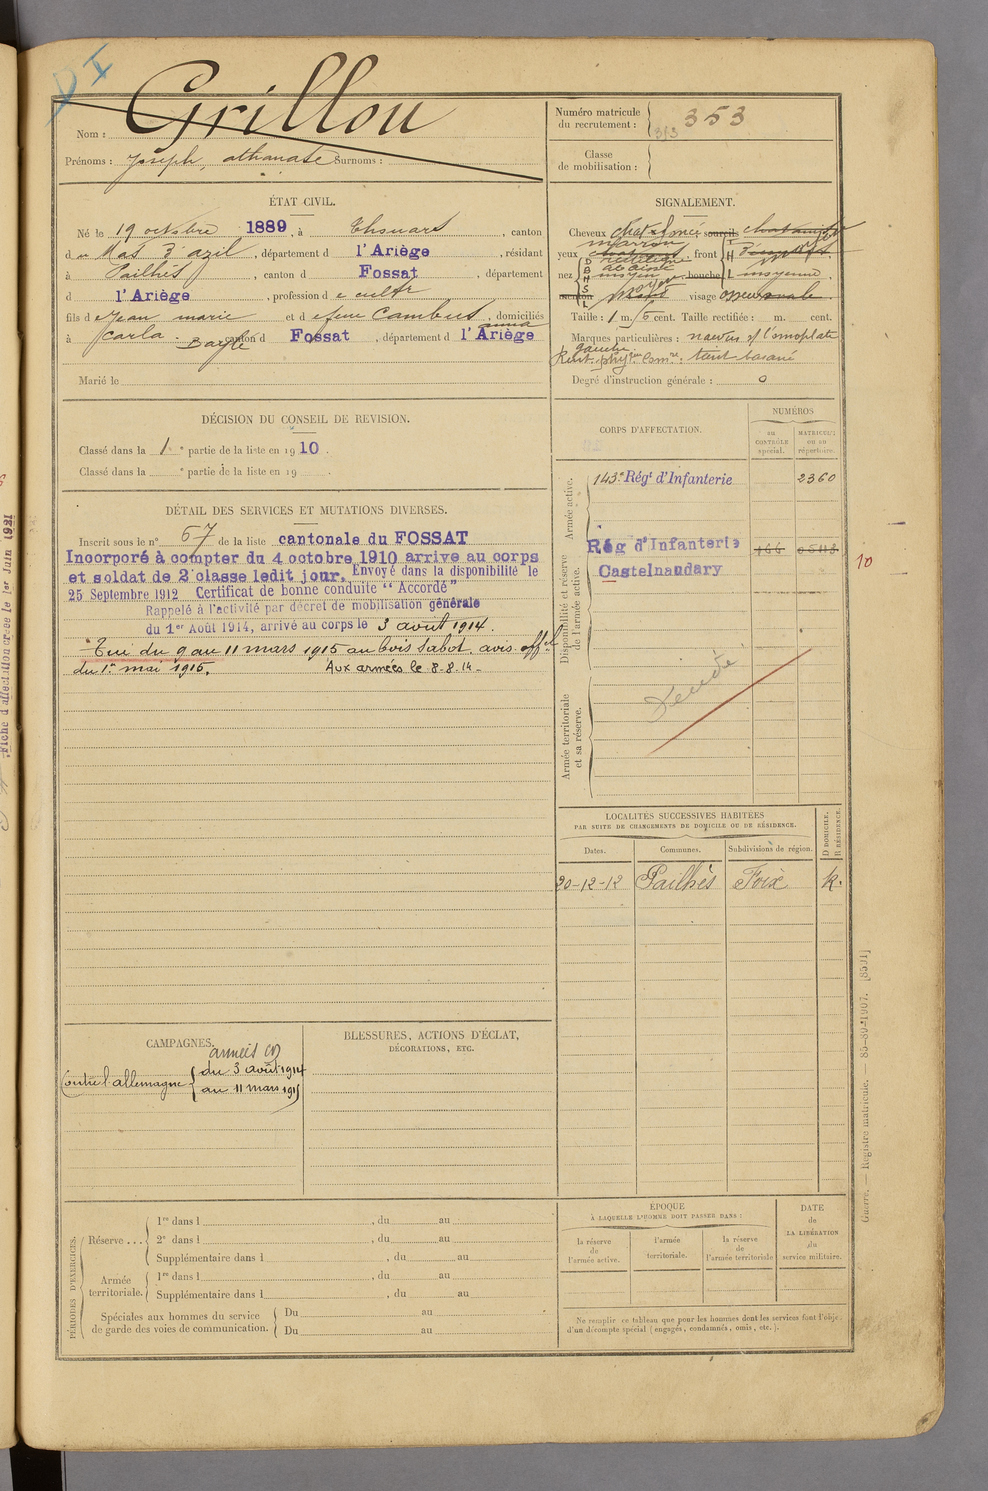 D I
Nom : Grillou
Prénoms : Joseph, athanase Surnoms :
Numéro matricule du recrutement : 353
353
Classe de mobilisation :
ÉTAT CIVIL.
Né le 19 octobre 1889, à Thouars, canton
du Mas d'azil, département d l'Ariège, résidant
à Pailhès, canton d Fossat, département
d l'Ariège, profession de cultr
fils de Jean marie et de feue Cambus anna, domiciliés
à Carla Bayle canton d Fossat, département d l'Ariège
Marié le
SIGNALEMENT.
Cheveux chat. foncé, sourcils
yeux marron, front
nez rectiligne, bouche moyenne,
menton visage
Taille : 1 m. cent. Taille rectifiée : m. cent.
Marques particulières : naevus s/ l'omoplate
gauche.
teint basané
Degré d'instruction générale : 0
DÉCISION DU CONSEIL DE REVISION.
Classé dans la 1e partie de la liste en 1910.
Classé dans la e partie de la liste en 19 .
CORPS D'AFFECTATION.
NUMÉROS
au CONTRÔLE spécial.
MATRICULE OU AU répertoire.
Armée active.
143e Régt d'Infanterie 2360
Disponibilité et réserve de l'armée active.
Rég d'Infanterie
Castelnaudary
Armée territoriale et sa réserve.
10
DÉTAIL DES SERVICES ET MUTATIONS DIVERSES.
Inscrit sous le n° 67 de la liste cantonale du FOSSAT
Incorporé à compter du 4 octobre 1910 arrive au corps
et soldat de 2e classe ledit jour. Envoyé dans la disponibilité le
25 Septembre 1912 Certificat de bonne conduite "Accordé"
Rappelé à l'activité par décret de mobilisation générale
du 1er Août 1914, arrivé au corps le 3 août 1914.
Tué du 9 au 11 mars 1915 au bois Sabot. avis offel
du 1er mai 1915. Aux armées le 8-8-14-
LOCALITÉS SUCCESSIVES HABITÉES
PAR SUITE DE CHANGEMENTS DE DOMICILE OU DE RÉSIDENCE.
Dates. Communes. Subdivisions de région. D DOMICILE. R RÉSIDENCE.
20-12-12 Pailhès Foix R.
CAMPAGNES.
Contre l'allemagne { armées
du 3 août 1914
au 11 mars 1915
BLESSURES, ACTIONS D'ÉCLAT,
DÉCORATIONS, ETC.
PÉRIODES D'EXERCICES.
Réserve ...
1re dans l , du au
2e dans l , du au
Supplémentaire dans l , du au
Armée territoriale.
1re dans l , du au
Supplémentaire dans l , du au
Spéciales aux hommes du service de garde des voies de communication.
Du au
Du au
ÉPOQUE
À LAQUELLE L'HOMME DOIT PASSER DANS :
la réserve de l'armée active.
l'armée territoriale.
la réserve de l'armée territoriale
DATE de LA LIBÉRATION du service militaire.
Ne remplir ce tableau que pour les hommes dont les services font l'objet
d'un décompte spécial (engagés, condamnés, omis, etc.).
Guerre. — Registre matricule. — 85-80-1907. [8501]
Fiche d'affectation créée le 1er Juin 1921